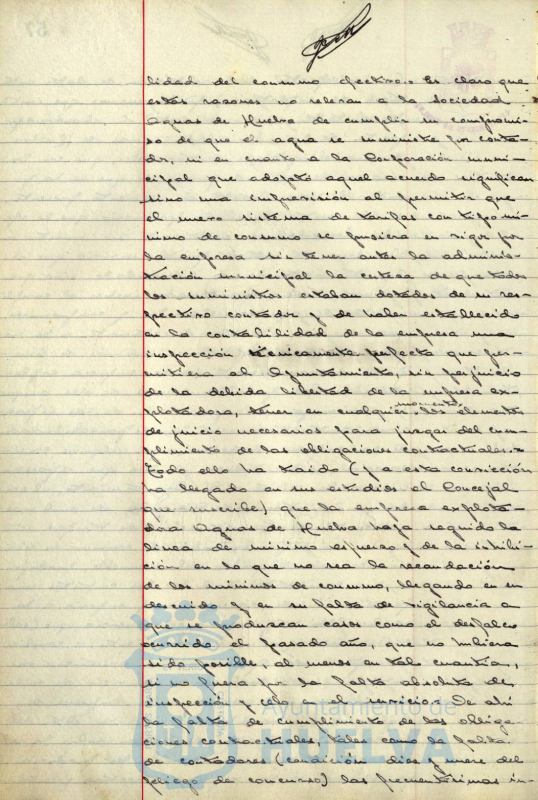 lidad del consumo efectivo.. Es claro que
estas razones no relevan a la Sociedad
Aguas de Huelva de cumplir su compromi-
so de que el agua se suministre por conta-
dor, ni en cuanto a la Corporación muni-
cipal que adoptó aquel acuerdo significan
sino una imprevisión al permitir que
el nuevo sistema de tarifas con tipo mí-
nimo de consumo se pusiera en vigor por
la empresa sin tener antes la adminis-
tración municipal la certeza de que todos
los suministros estaban dotados de su res-
pectivo contador y de haber establecido
en la contabilidad de la empresa una
inspección técnicamente perfecta que per-
mitiera al Ayuntamiento, sin perjuicio
de la debida libertad de la empresa ex-
plotadora, tener en cualquier momento los elementos
de juicio necesarios para juzgar del cum-
plimiento de las obligaciones contractuales.=
Todo ello ha traido (y a esta convicción
ha llegado en sus estudios el Concejal
que suscribe) que la empresa explota-
dora Aguas de Huelva haya seguido la
linea de mínimo esfuerzo y de la inhibi-
ción en lo que no sea la recaudación
de los mínimos de consumo, llegando en su
descuido y en su falta de vigilancia a
que se produzcan casos como el desfalco
ocurrido el pasado año, que no hubiera
sido posible, al menos en tal cuantia,
si no fuera por la falta absoluta de
inspección y al servicio. De ahí
la falta de cumplimiento de las obliga-
ciones contractuales, tales como la falta
de contadores (condición diez y nueve del
pliego de concurso) las frecuentísimas in-
Ayuntamiento de
HUELVA